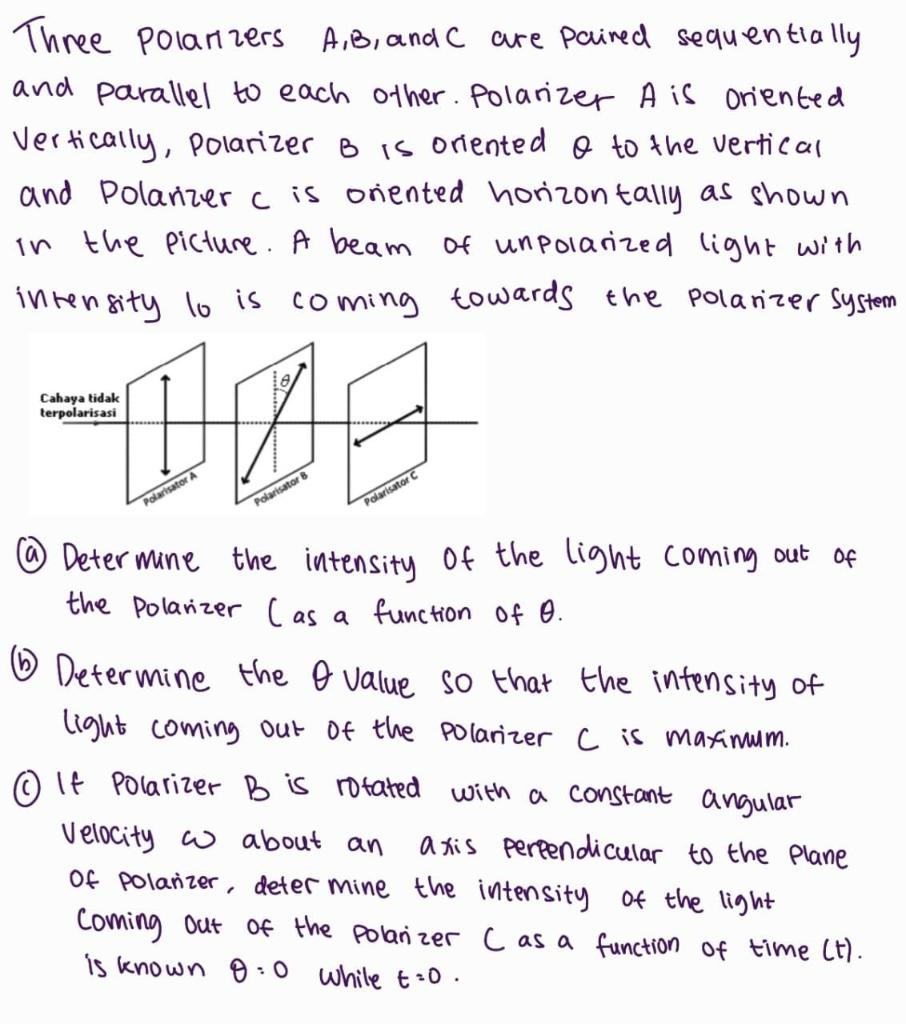 Three polarizers A, B, and C are paired sequentially
and parallel to each other. Polarizer A is oriented
vertically, polarizer B is oriented θ to the vertical
and Polarizer C is oriented horizontally as shown
in the picture. A beam of unpolarized light with
intensity I0 is coming towards the polarizer system
Cahaya tidak
terpolarisasi
θ
Polarisator A
Polarisator B
Polarisator C
(a) Determine the intensity of the light coming out of
the polarizer C as a function of θ.
(b) Determine the θ value so that the intensity of
light coming out of the polarizer C is maximum.
(c) If Polarizer B is rotated with a constant angular
velocity ω about an axis perpendicular to the plane
of polarizer, determine the intensity of the light
Coming out of the polarizer C as a function of time (t).
is known θ=0 while t=0.